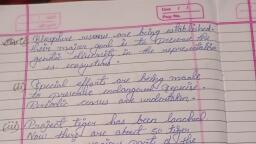 Date
Page No.
Biosphere reserves are being established.
their major goal is to preserve the
genetic diversity in the representative
ecosystems.
(ii) Special efforts are being made
to preserve endangered species.
Periodic census are undertaken.
(iii) Project tiger has been lanched
Now there are about 50 tiger
parts of the